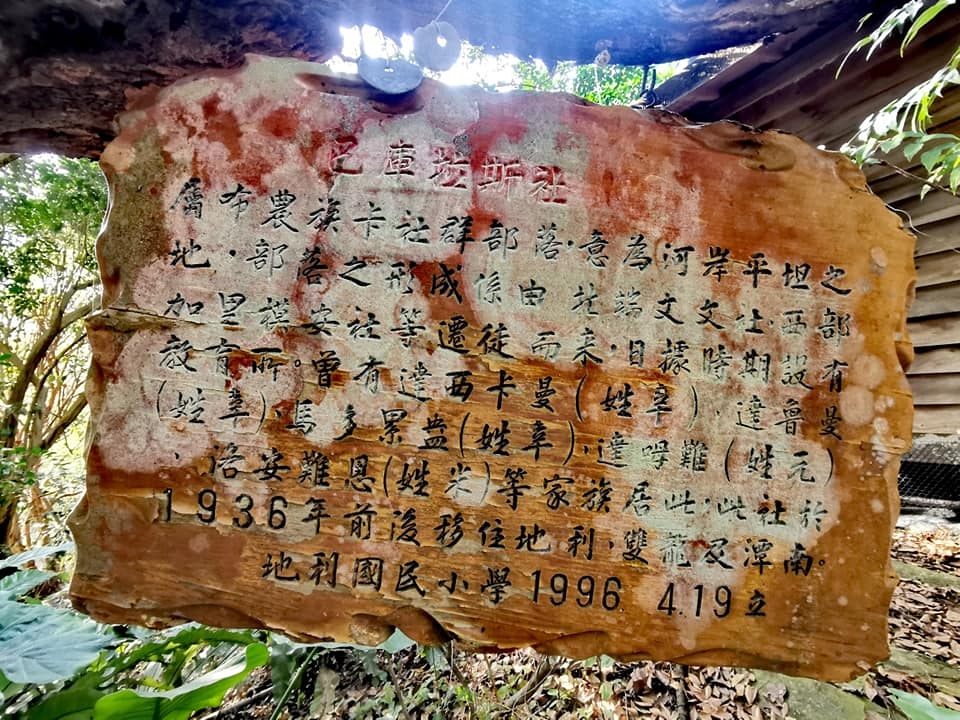 巴庫拉斯社
屬布農族卡社群部落，意為河岸平坦之
地，部落之形成係由社端文文社，西部
加里模安社等遷徒而來，日據時期設有
教育所。曾有達西卡曼（姓辛），達魯曼
（姓辜），馬多累盎（姓辜），達呣難（姓元）
、洛安難恩（姓米）等家族居此，此社於
1936年前後移住地利，雙龍及潭南。
地利國民小學1996 4.19立